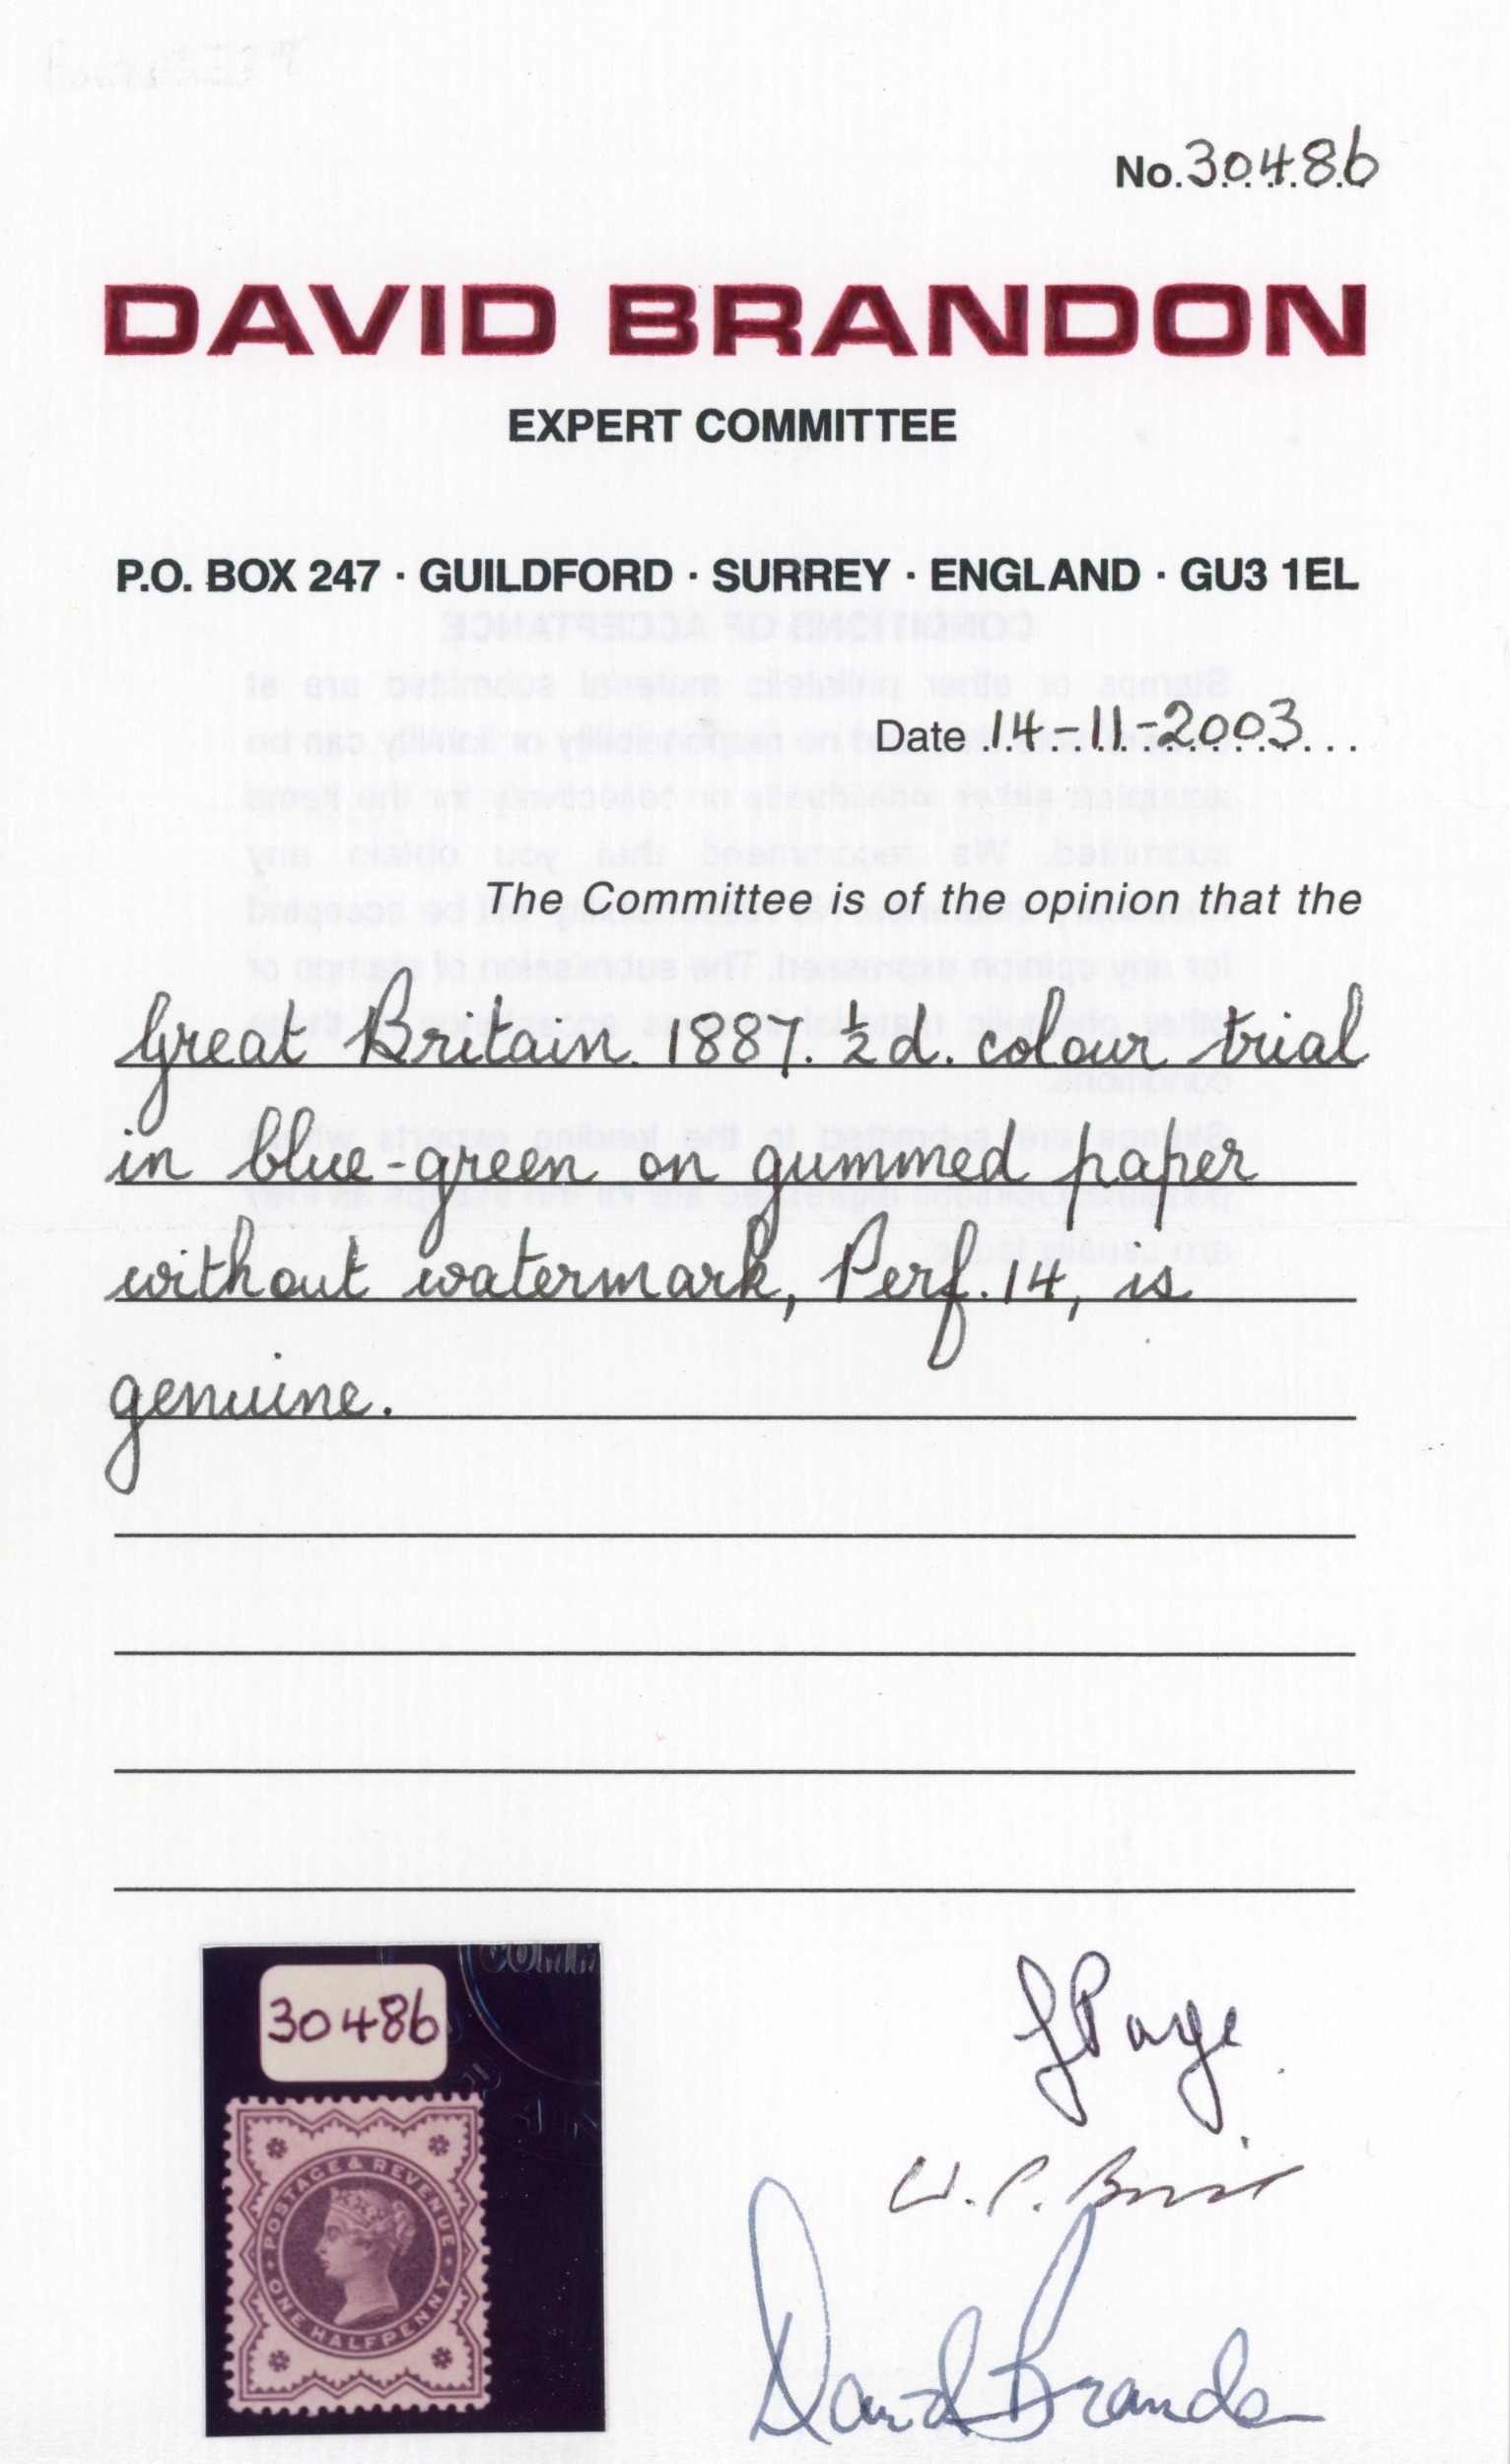 No. 30486
DAVID BRANDON
EXPERT COMMITTEE
P.O. BOX 247 · GUILDFORD · SURREY · ENGLAND · GU3 1EL
Date 14-11-2003
The Committee is of the opinion that the
Great Britain. 1887. ½d. colour trial
in blue-green on gummed paper
without watermark, Perf. 14, is
genuine.
COMM
30486
POSTAGE & REVENUE
ONE HALFPENNY
David Brandon